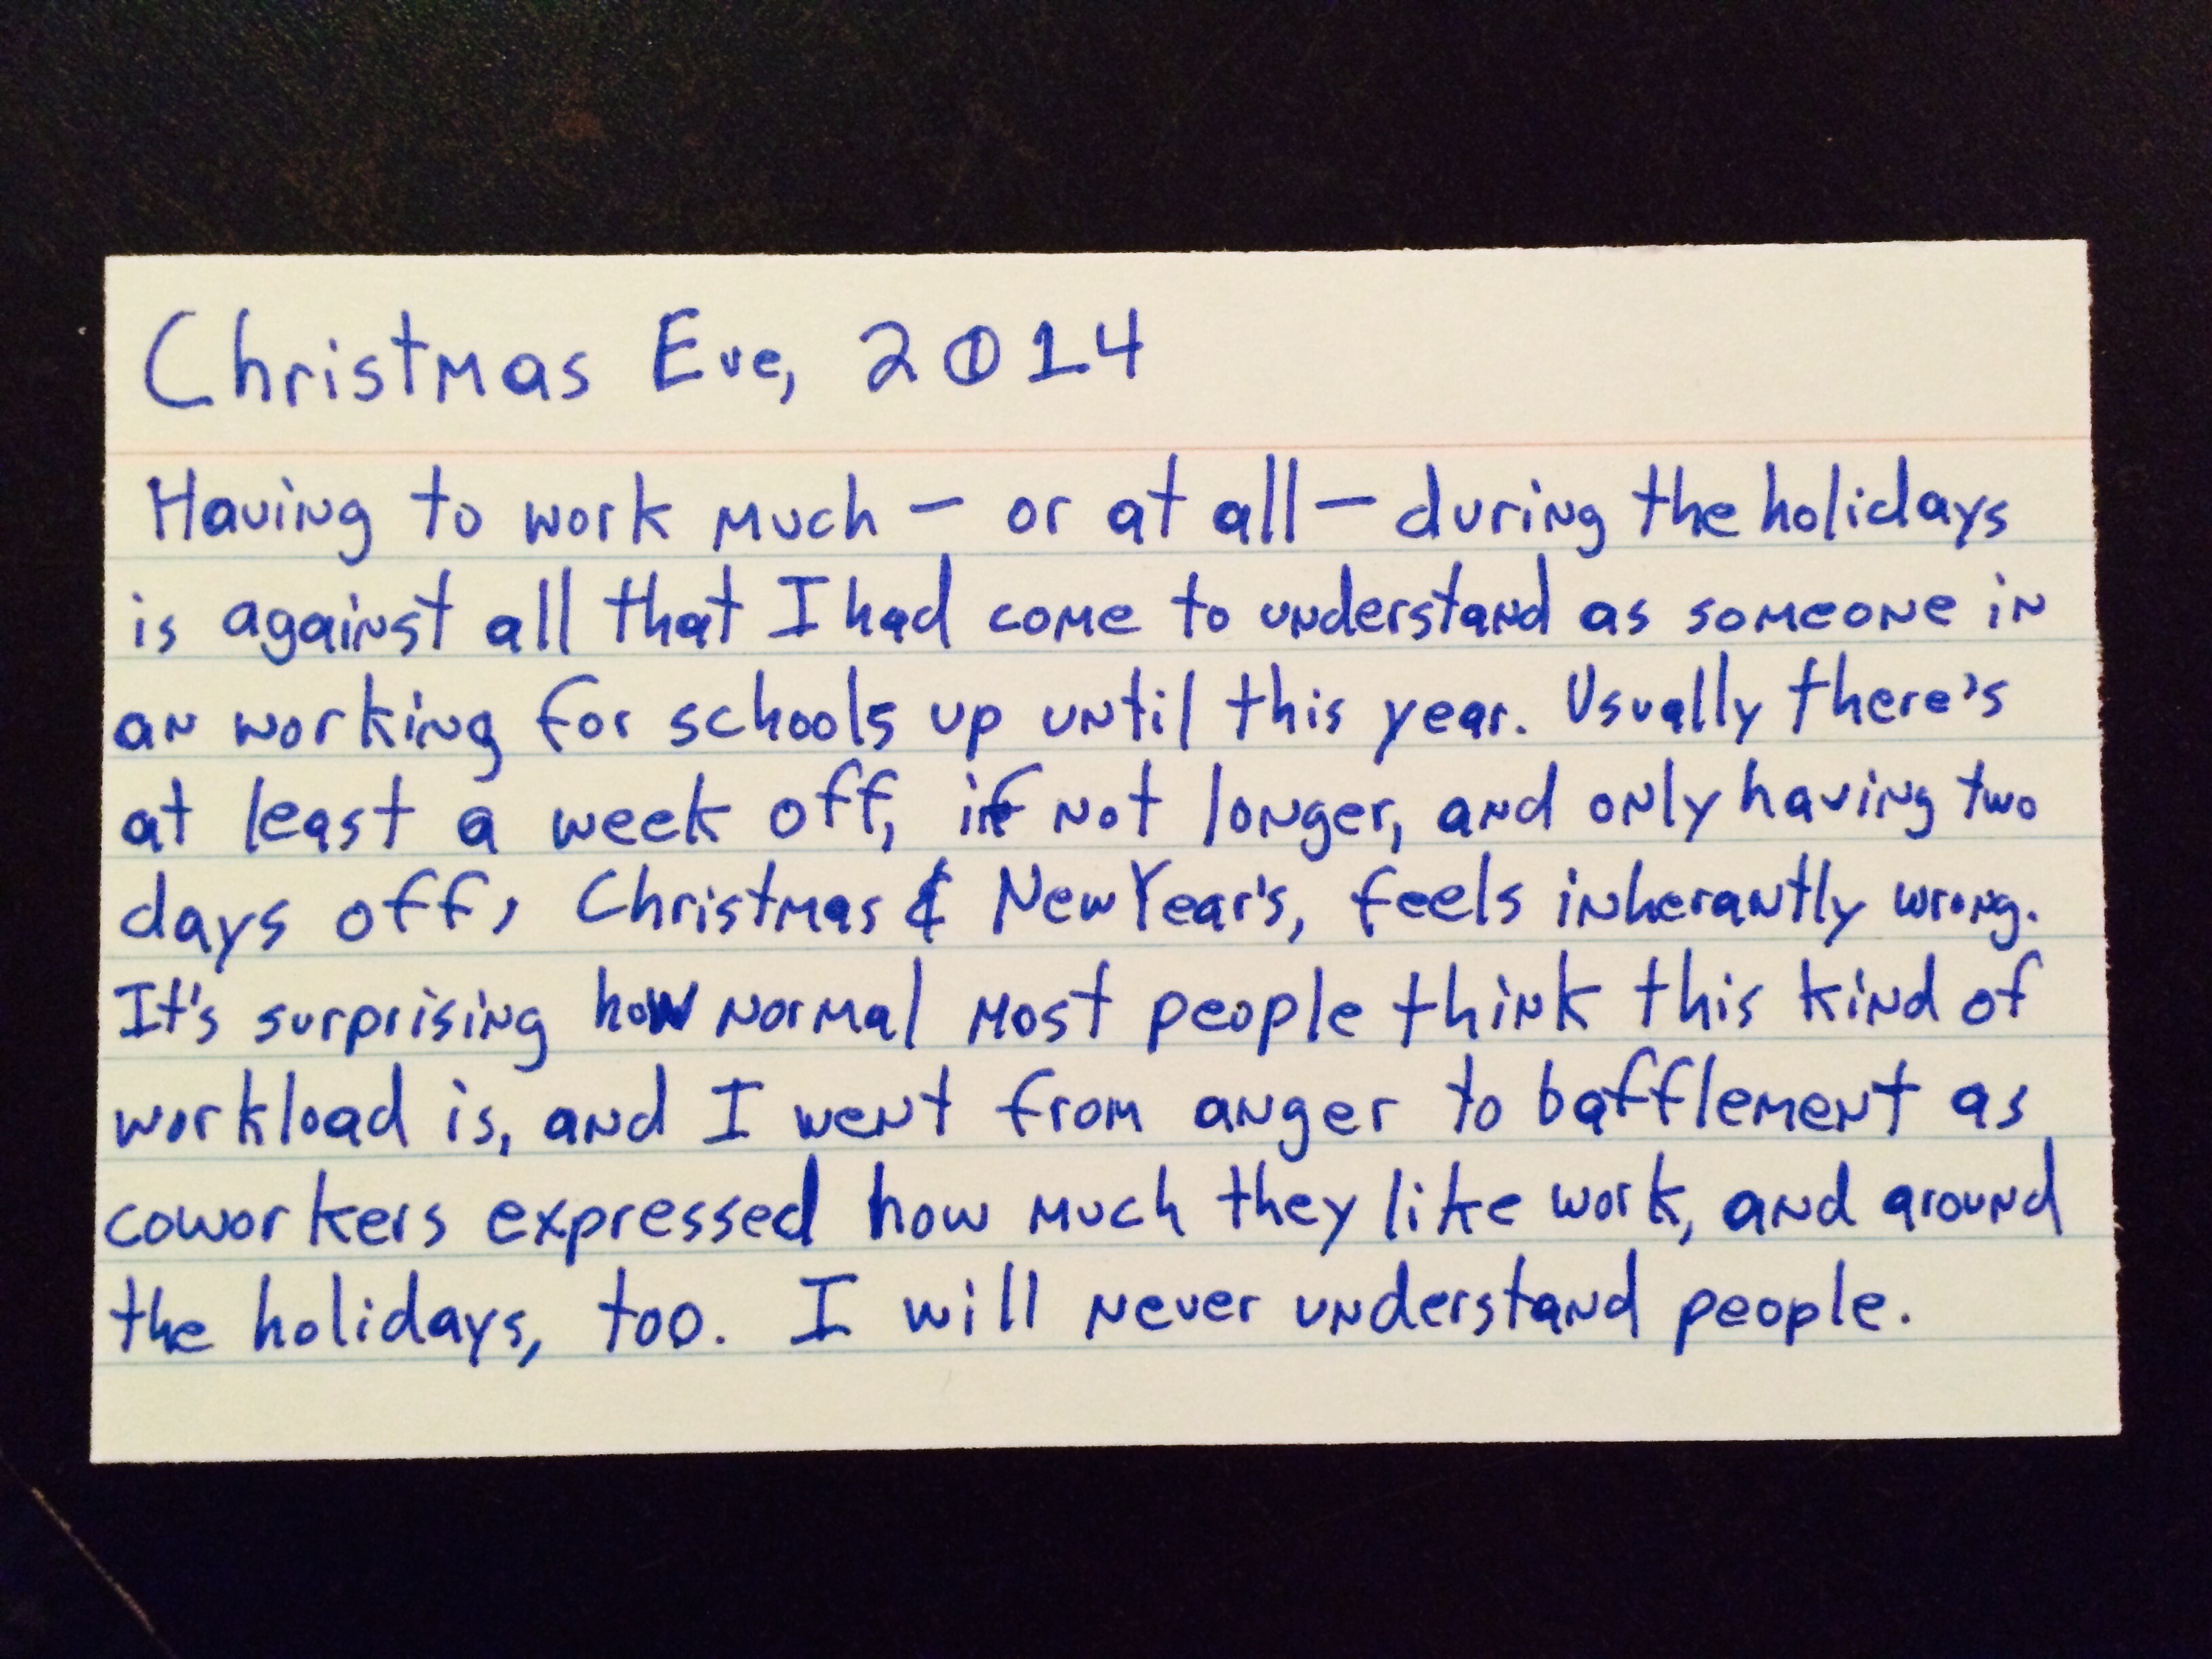 Christmas Eve, 2014
Having to work much – or at all – during the holidays
is against all that I had come to understand as someone in
an working for schools up until this year. Usually there's
at least a week off, if not longer, and only having two
days off, Christmas & New Year's, feels inherantly wrong.
It's surprising how normal most people think this kind of
workload is, and I went from anger to bafflement as
coworkers expressed how much they like work, and around
the holidays, too. I will never understand people.